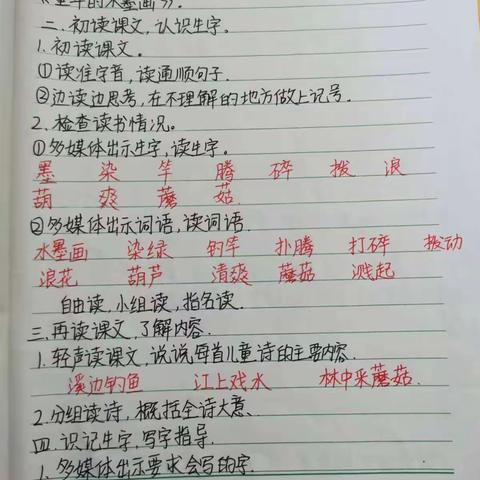 《童年的水墨画》.
二.初读课文,认识生字。
1.初读课文。
①读准字音,读通顺句子.
②边读边思考,在不理解的地方做上记号.
2.检查读书情况。
①多媒体出示生字,读生字。
墨 染 竿 腾 碎 拨 浪
葫 爽 蘑 菇.
②多媒体出示词语,读词语.
水墨画 染绿 钓竿 扑腾 打碎 拨动
浪花 葫芦 清爽 蘑菇 溅起
自由读,小组读,指名读.
三.再读课文,了解内容.
1.轻声读课文,说说每首儿童诗的主要内容.
溪边钓鱼 江上戏水 林中采蘑菇.
2.分组读诗,概括全诗大意.
四.识记生字,写字指导.
1.多媒体出示要求会写的字.